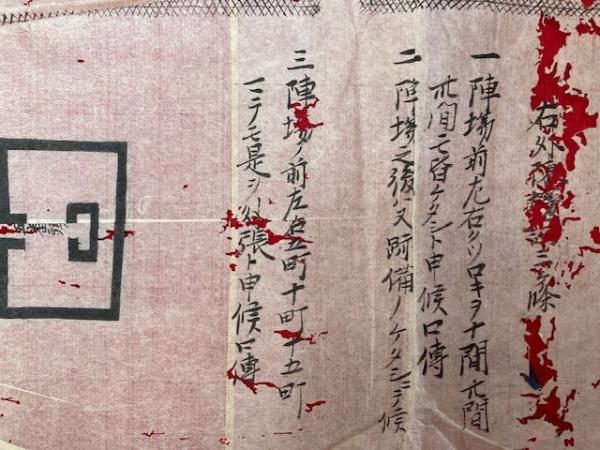 右外張 三ヶ條
一 陣場前左右クツロキヲ十間廿間
卅間モ踏ケタシト申候口傳
二 陣場之後ハ又跡備ノケタシニテ候
三 陣場ノ前左右五町十町十五町
ニテモ是ヲ外張ト申候口傳